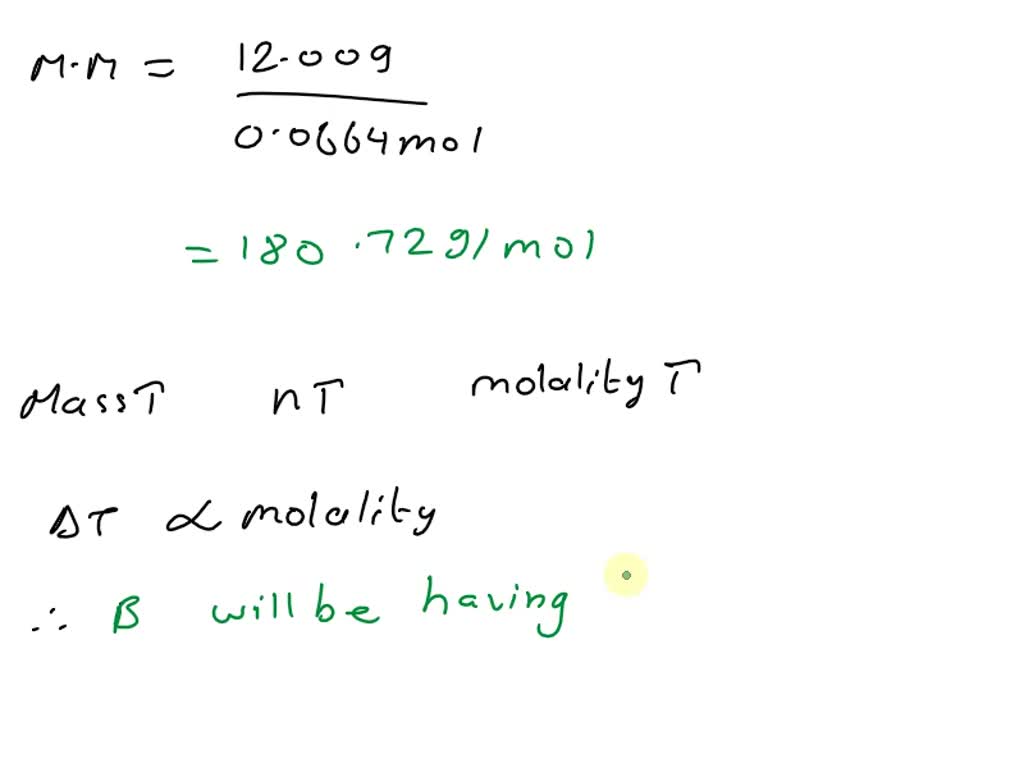 M.M = 12.00g
0.0664mol
= 180.72g/mol
Mass↑ n↑ molality↑
ΔT ∝ molality
∴ B will be having